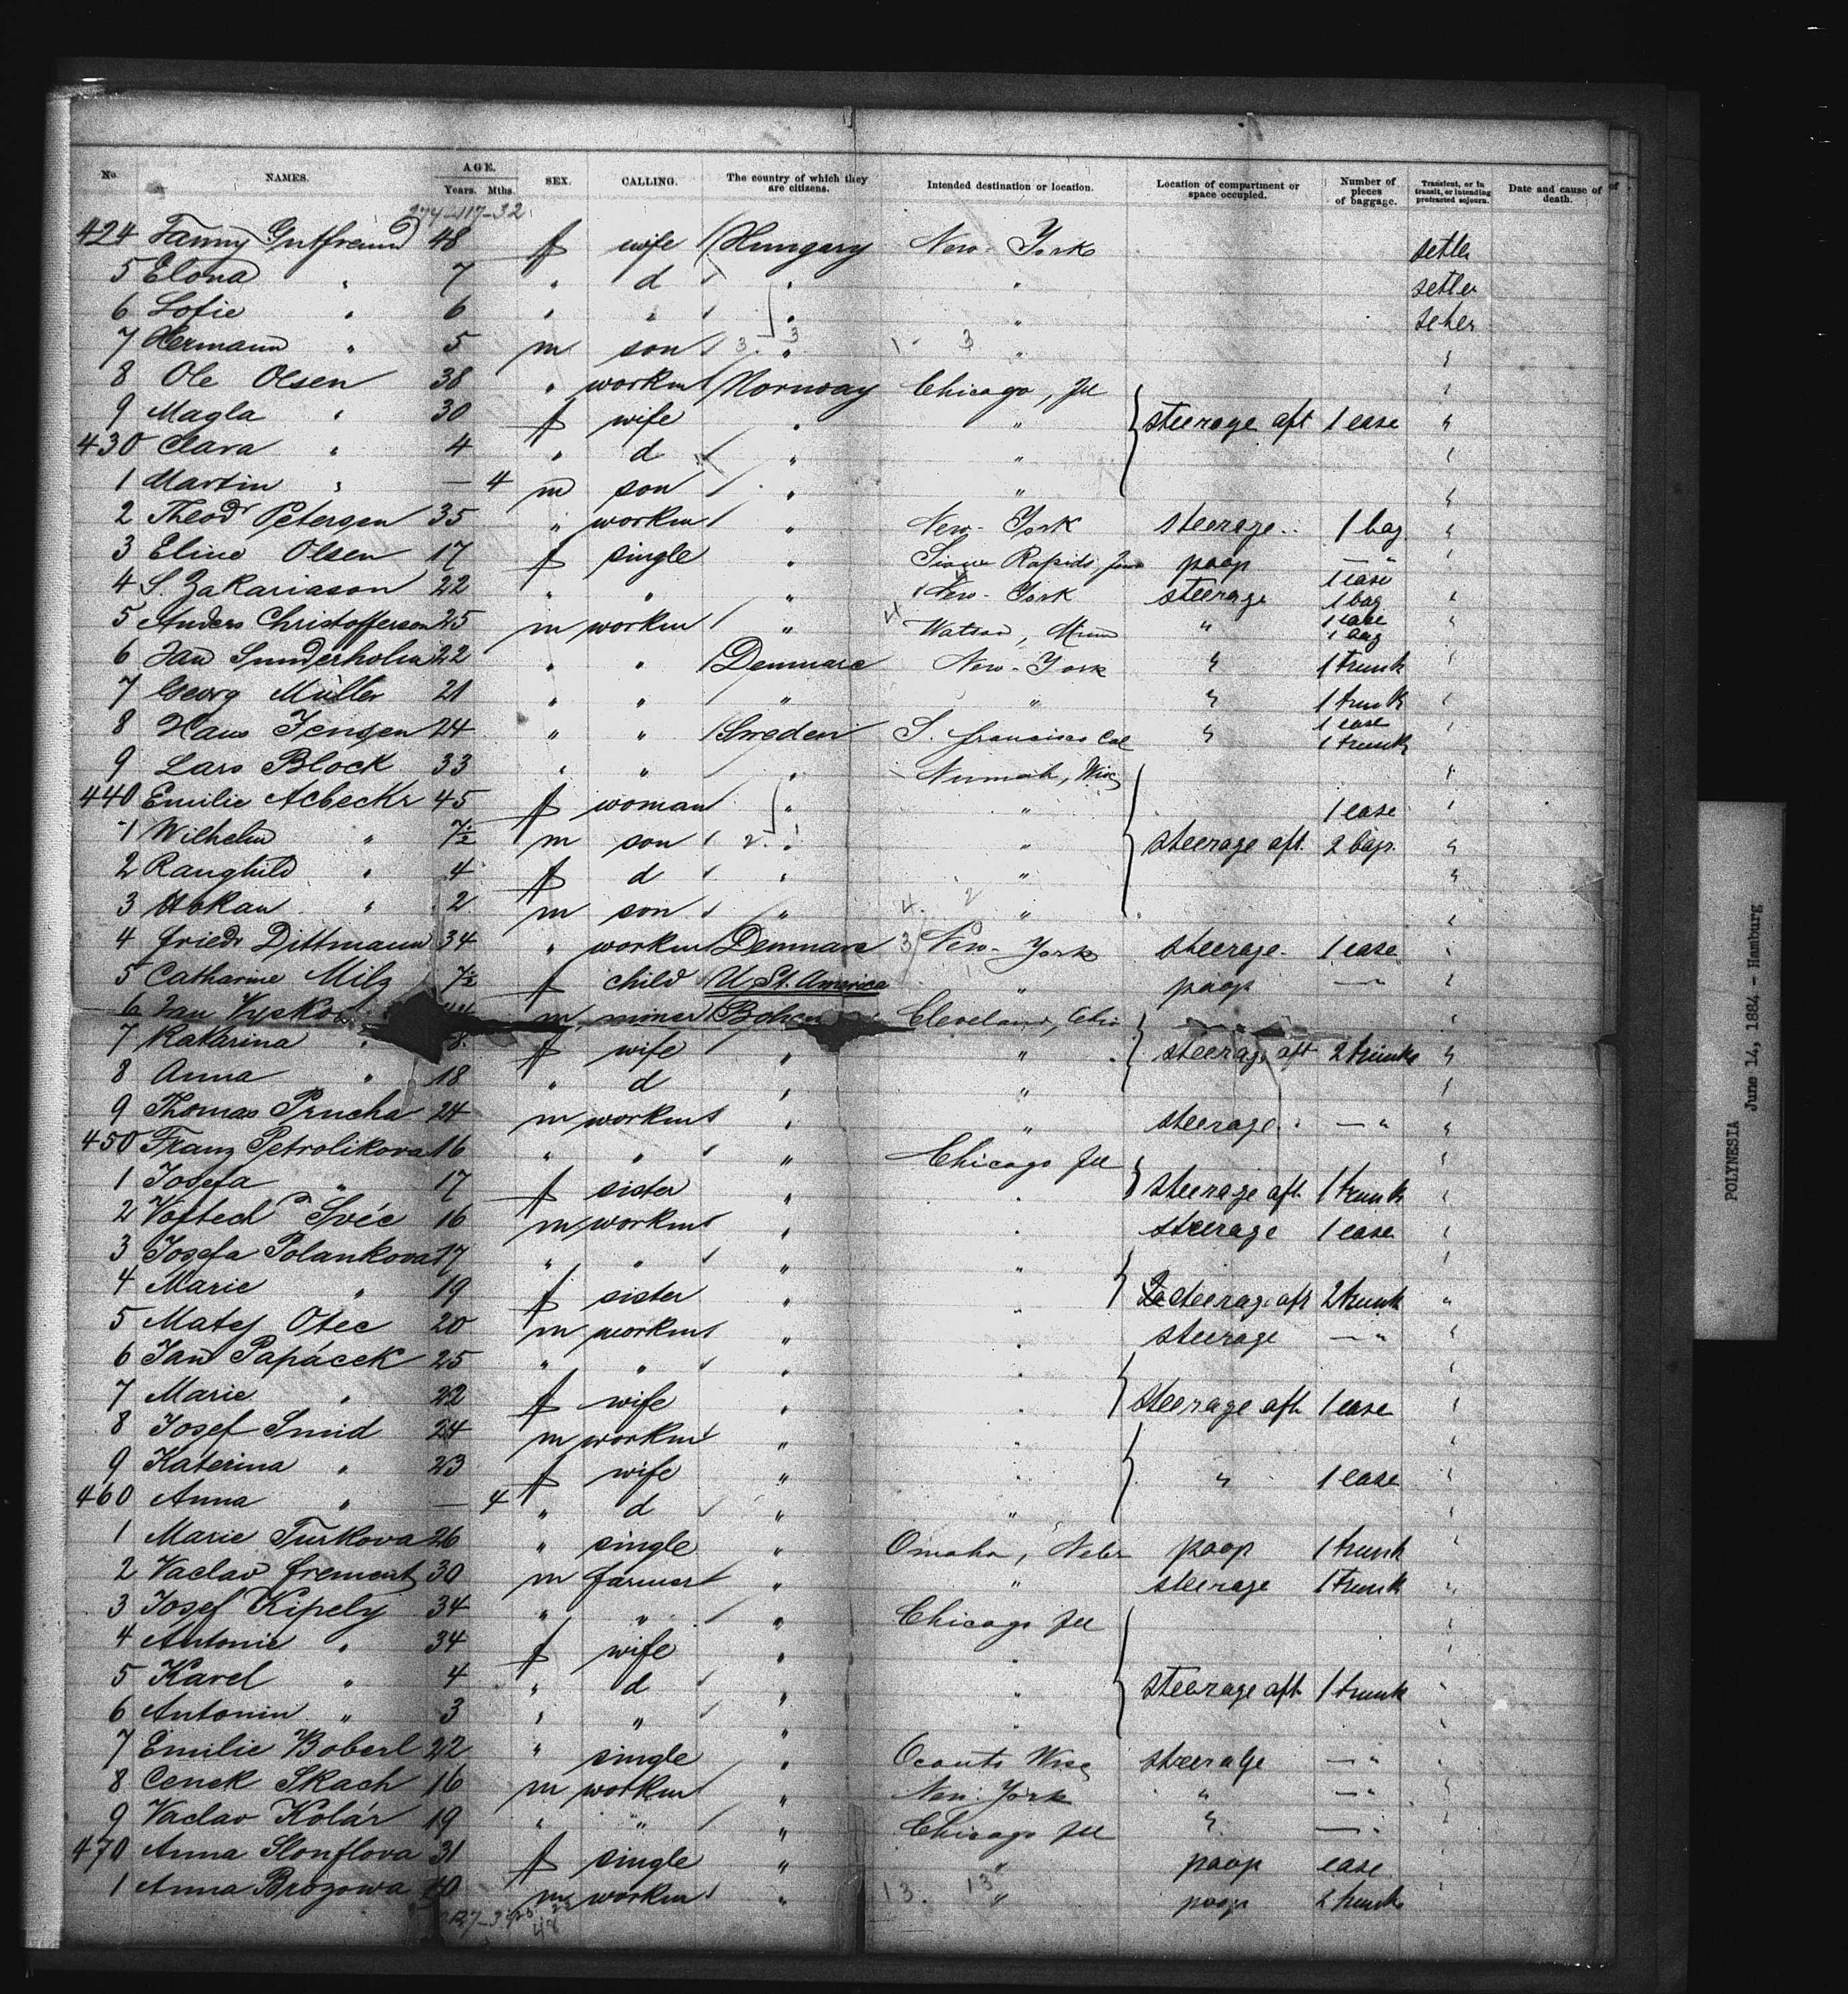 No. NAMES. AGE. Years. Mths. SEX. CALLING. The country of which they are citizens. Intended destination or location. Location of compartment or space occupied. Number of pieces of baggage. Transient, or in transit, or intending protracted sojourn. Date and cause of death.
274-117-32
424 Fanny Gutfreund 48 f wife Hungary New-York setler
5 Elona " 7 " d " " setler
6 Sofie " 6 " " " " setler
7 Hermann " 5 m son " " "
8 Ole Olsen 38 " workm Norway Chicago, Ill "
9 Magla " 30 f wife " " steerage aft 1 case "
430 Clara " 4 " d " " "
1 Martin " — 4 m son " " "
2 Theodr Petersen 35 " workm " New-York steerage 1 bag "
3 Eline Olsen 17 f single " Sioux Rapids, Iowa poop — " "
4 S. Zakariason 22 " " " New-York steerage 1 case 1 bag "
5 Anders Christofferson 25 m workm " Watson, Minn " 1 case 1 bag "
6 Jan Sunderholm 22 " " Denmarc New-York " 1 trunk "
7 Georg Müller 21 " " " " " 1 trunk "
8 Hans Jensen 24 " " Sweden S. francisco Cal " 1 case 1 trunk "
9 Lars Block 33 " " " Wisc "
440 Emilie 45 f woman " " 1 case "
1 Wilhelm " 7½ m son " " steerage aft. 2 bags "
2 Ranghild " 4 f d " " "
3 Hokan " 2 m son " " "
4 friedr Dittmann 34 " workm Denmarc New-York steerage 1 case "
5 Catharine Milz 7½ f child U. St. America " poop — " "
6 Jan m miner Cleveland, Ohio "
7 Katarina " f wife " " steerage aft 2 trunks "
8 Anna " 18 " d " " "
9 Thomas Prucha 24 m workm " " steerage — " "
450 Franz Petrolikova 16 " " " Chicago Ill "
1 Josefa " 17 f sister " " steerage aft. 1 trunk "
2 Vojtech Svéc 16 m workm " " steerage 1 case "
3 Josefa Polankova 17 " " " " "
4 Marie " 19 f sister " " steerage aft 2 trunk "
5 Matej Otec 20 m workm " " steerage — " "
6 Jan Papácek 25 " " " " "
7 Marie " 22 f wife " " steerage aft 1 case "
8 Josef Smid 24 m workm " " "
9 Katerina " 23 f wife " " " 1 case "
460 Anna " — 4 " d " " "
1 Marie Turkova 26 " single " Omaha, Nebr poop 1 trunk "
2 Vaclav 30 m farmer " " steerage 1 trunk "
3 Josef Kipely 34 " " " Chicago Ill "
4 Antonie " 34 f wife " " "
5 Karel " 4 " d " " steerage aft 1 trunk "
6 Antonin " 3 " " " " "
7 Emilie Boberl 22 " single " Oconto Wisc steerage — " "
8 Cenek Skach 16 m workm " New York " — " "
9 Vaclav Kolár 19 " " " Chicago Ill " — " "
470 Anna Slonflova 31 f single " " poop case "
1 Anna Brozowa 40 m workm " " poop 2 trunks "
POLYNESIA June 14, 1884 - Hamburg